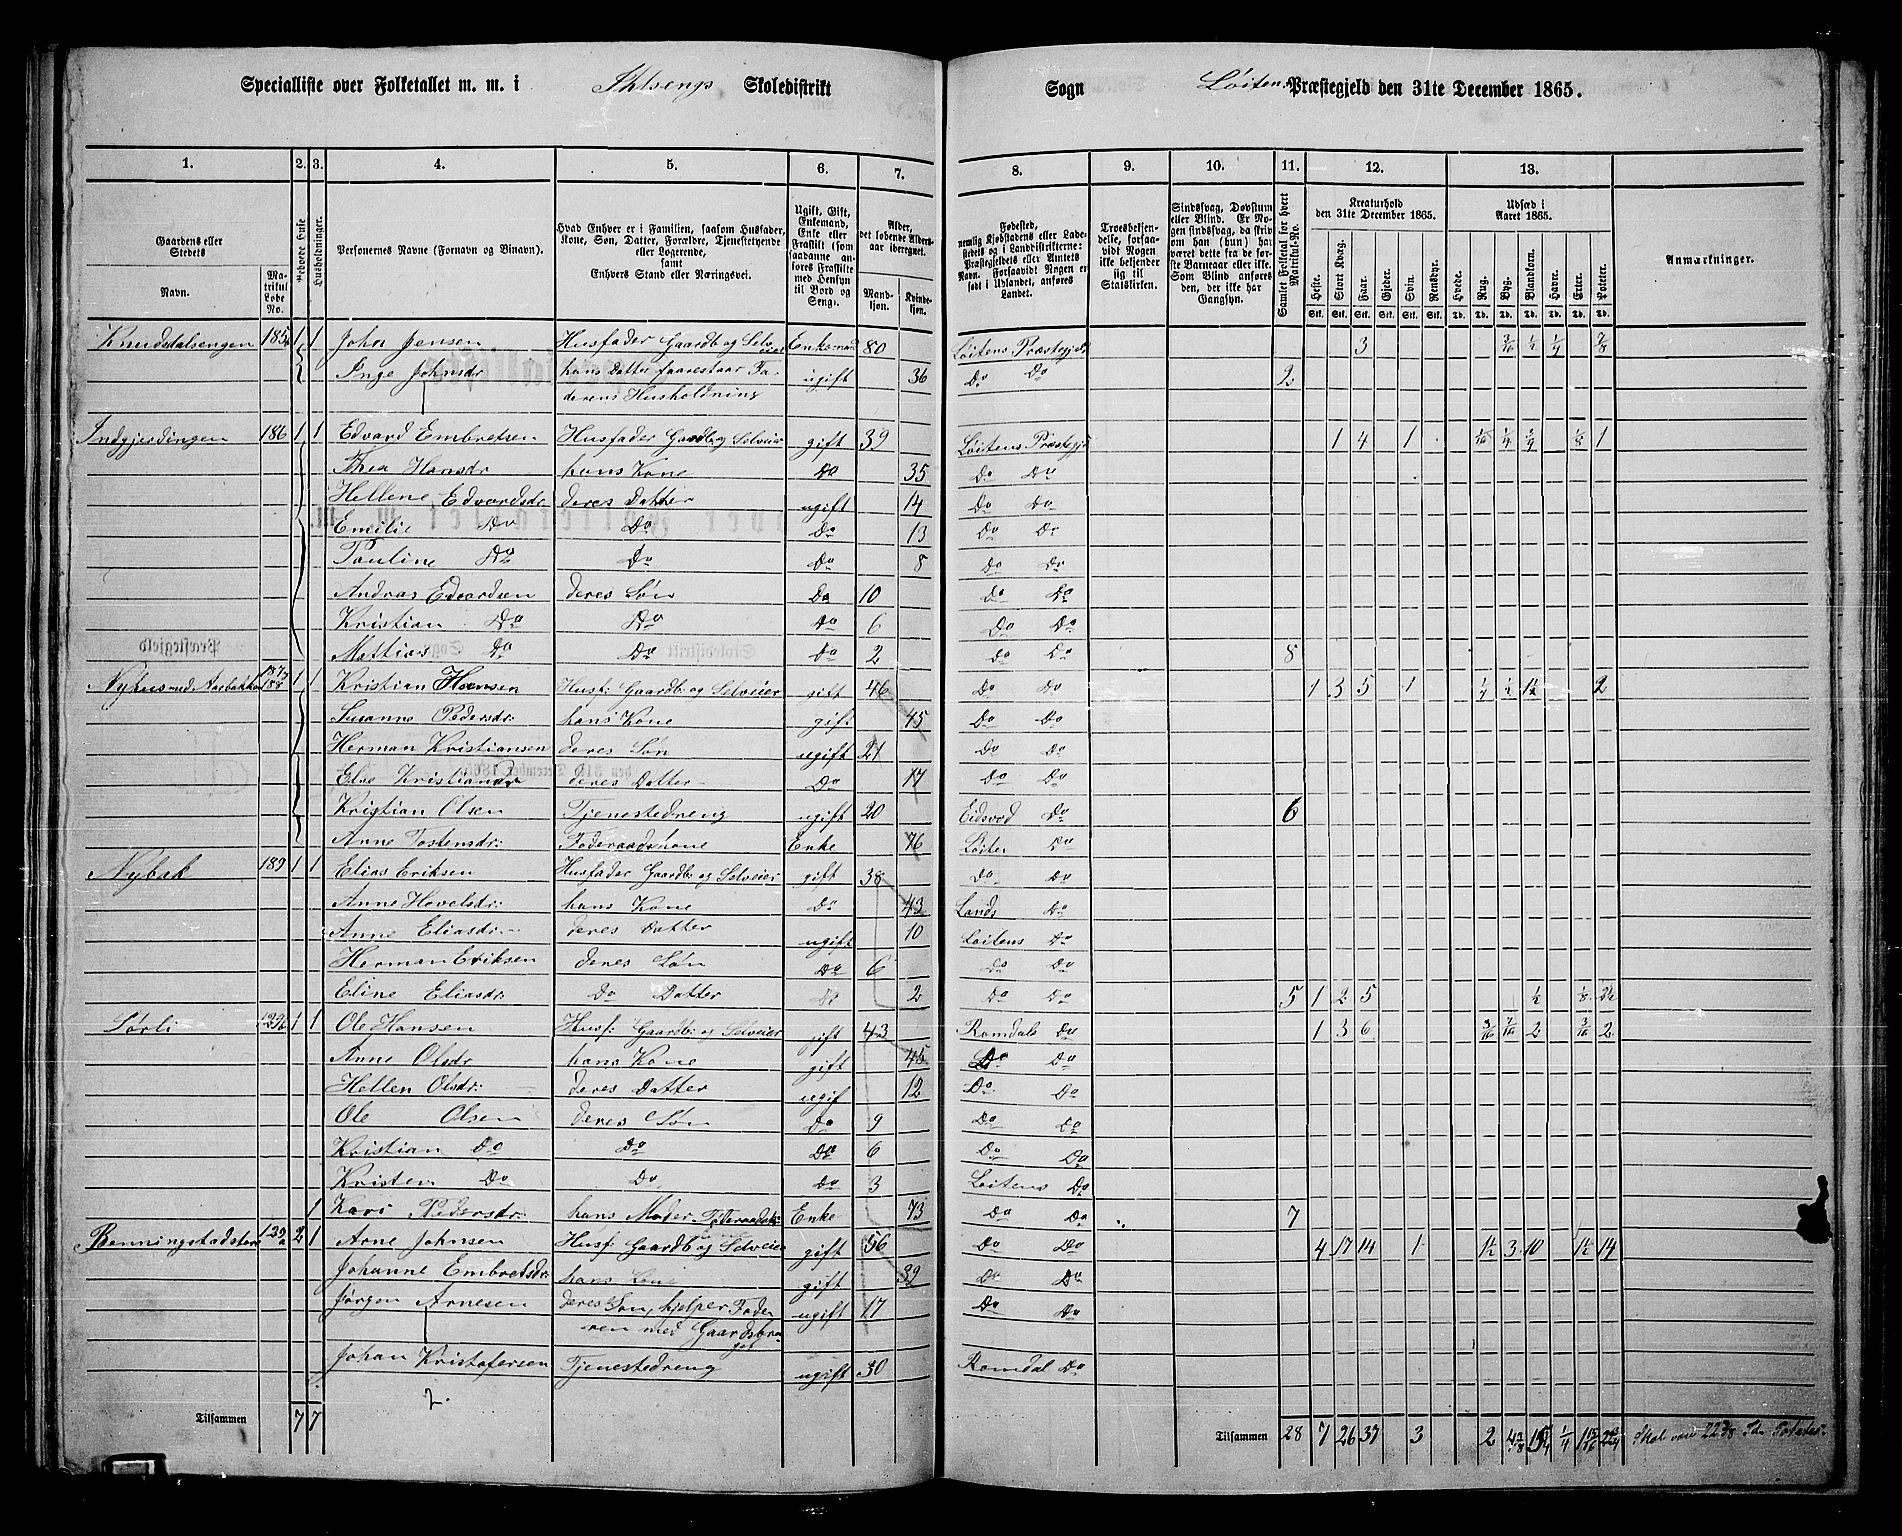 Specialliste over Folketallet m. m. i Ihlsengs Skoledistrikt Sogn Löitens Præstegjeld den 31te December 1865.
1. 2. 3. 4. 5. 6. 7. 8. 9. 10. 11. 12. 13.
Gaardens eller Stedets Navn. Matrikul Løbe No. Beboede Huse Husholdninger. Personernes Navne (Fornavn og Binavn). Hvad Enhver er i Familien, saasom Husfader, Kone, Søn, Datter, Forældre, Tjenestetyende eller Logerende, samt Enhvers Stand eller Næringsvei. Ugift, Gift, Enkemand, Enke eller Fraskilt (som saadanne anføres Fraskilte med Hensyn til Bord og Seng). Alder, det løbende Aldersaar iberegnet. Mandkjøn. Kvindekjøn. Fødested, nemlig Kjøbstadens eller Ladestedets og i Landdistrikterne: Præstegjeldets eller Amtets Navn. Forsaavidt Nogen er født i Udlandet, anføres Landet. Troesbekjendelse, forsaavidt Nogen ikke bekjender sig til Statskirken. Sindssvag, Døvstum eller Blind. Er Nogen sindssvag, da skriv om han (hun) har været dette fra de første Barneaar eller ikke. Som Blind anføres den, der ikke har Gangsyn. Samlet Folketal for hvert Matrikul-No. Kreaturhold den 31te December 1865. Heste. Stort Kvæg. Faar. Gjeder. Svin. Rensdyr. Udsæd i Aaret 1865. Hvede. Rug. Byg. Blandkorn. Havre. Erter. Poteter. Anmærkninger.
Stk. Stk. Stk. Stk. Stk. Stk. Td. Td. Td. Td. Td. Td. Td.
Knudsdalsengen 185 1 1 John Jensen Husfader Gaardb og Selveier Enkemand 80 Löitens Præstegjeld 3 3/16 1/2 1/4 3/8
Inge Johnsdr hans Datter foarestaar Fa- ugift 36 Do Do 2
derens Husholdning
Indgjerdingen 186 1 1 Edvard Embretsen Husfader Gaardb og Selveier gift 39 Löitens Præstegj 1 4 1 1/16 1/4 3/4 1/8 1
Thea Hansdr hans Kone Do 35 Do Do
Hellene Edvardsdr deres Datter ugift 14 Do Do
Emilie Do Do Do 13 Do Do
Pauline Do Do Do 8 Do Do
Andras Edvardsen deres Søn Do 10 Do Do
Kristian Do Do Do 6 Do Do
Mattias Do Do Do 2 Do Do 8
Nyhus med Aaebakken 187, 188 1 1 Kristian Hansen Husf: Gaardb og Selveier gift 46 Do Do 1 3 5 1 1/4 1/2 1 1/2 2
Susanne Pedersdr: hans Kone gift 45 Do Do
Herman Kristiansen deres Søn ugift 21 Do Do
Else Kristiansdr deres Datter Do 17 Do Do
Kristian Olsen Tjenestedreng ugift 20 Eidsvod Do 6
Anne Tostensdr: Foderaadskone Enke 76 Löiten Do
Nybak 189 1 1 Elias Eriksen Husfader Gaardb og Selveier gift 38 Do Do
Anne Hovelsdr: hans Kone Do 43 Lands Do
Anne Eliasdr: deres Datter ugift 10 Löitens Do
Herman Eriksen deres Søn Do 6 Do Do
Eline Eliasdr: Do Datter Do 2 Do Do 5 1 2 5 1/2 1/8 2 1/2
Sørli 1 1 Ole Hansen Husf: Gaardb: og Selveier gift 43 Romdals Do 1 3 6 3/16 7/16 2 3/16 2
Anne Olsdr hans Kone gift 45 Do Do
Hellen Olsdr: deres Datter ugif 12 Do Do
Ole Olsen deres Søn Do 9 Do Do
Kristian Do Do Do 6 Do Do
Kristen Do Do Do 3 Löitens Do
1 Kari Pedersdr: hans Moder Foderaadsk: Enke 73 Do Do 7
Benningstadsteu 2 1 Arne Johnsen Husf: Gaardb og Selveier gift 56 Do Do 4 17 14 1 1 1/2 3 10 1 1/2 14
Johanne Embretsdr hans Kone gift 39 Do Do
Jørgen Arnesen deres Søn, hjelper Fade- ugift 17 Do Do
ren med Gaardsbru-
get
Johan Kristofersen Tjenestedreng ugift 30 Romdal Do
2.
Tilsammen 7 7 Tilsammen 28 7 26 37 3 2 1/4